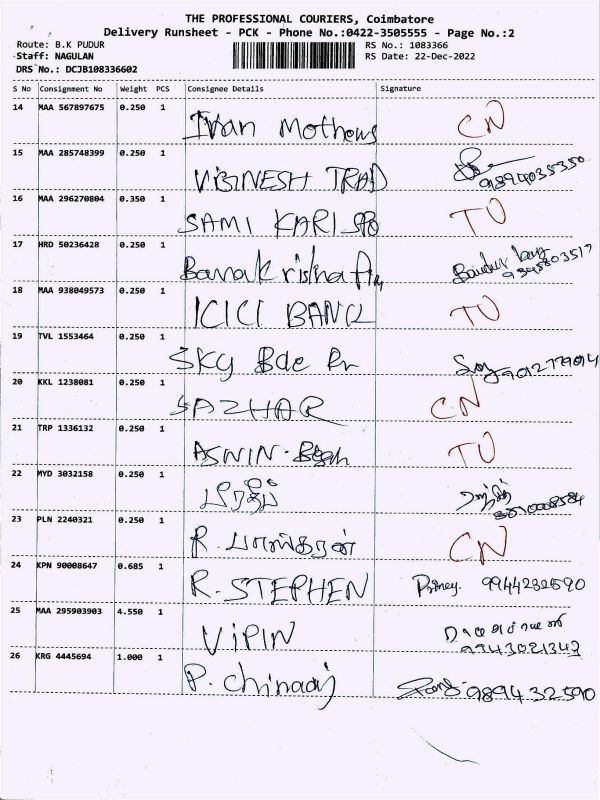 THE PROFESSIONAL COURIERS, Coimbatore
Delivery Runsheet - PCK - Phone No.:0422-3505555 - Page No.:2
Route: B.K PUDUR RS No.: 1083366
Staff: NAGULAN RS Date: 22-Dec-2022
DRS No.: DCJB108336602
S No Consignment No Weight PCS Consignee Details Signature
14 MAA 567897675 0.250 1 Ivan Mothews CN
15 MAA 285748399 0.250 1 VIGINESH TRAD 9894035350
16 MAA 296270804 0.350 1 SAMI KARI TU
17 HRD 50236428 0.250 1
18 MAA 938049573 0.250 1 ICICI BANK TU
19 TVL 1553464 0.250 1 SKY Bde
20 KKL 1238081 0.250 1 SAZHAR CN
21 TRP 1336132 0.250 1 ASWIN. TU
22 MYD 3032158 0.250 1 பிரதீப்
23 PLN 2240321 0.250 1 R. பாஸ்கரன் CN
24 KPN 90008647 0.685 1 R. STEPHEN 9944282590
25 MAA 295903903 4.550 1 VIPIN 9943021342
26 KRG 4445694 1.000 1 P. 989432590